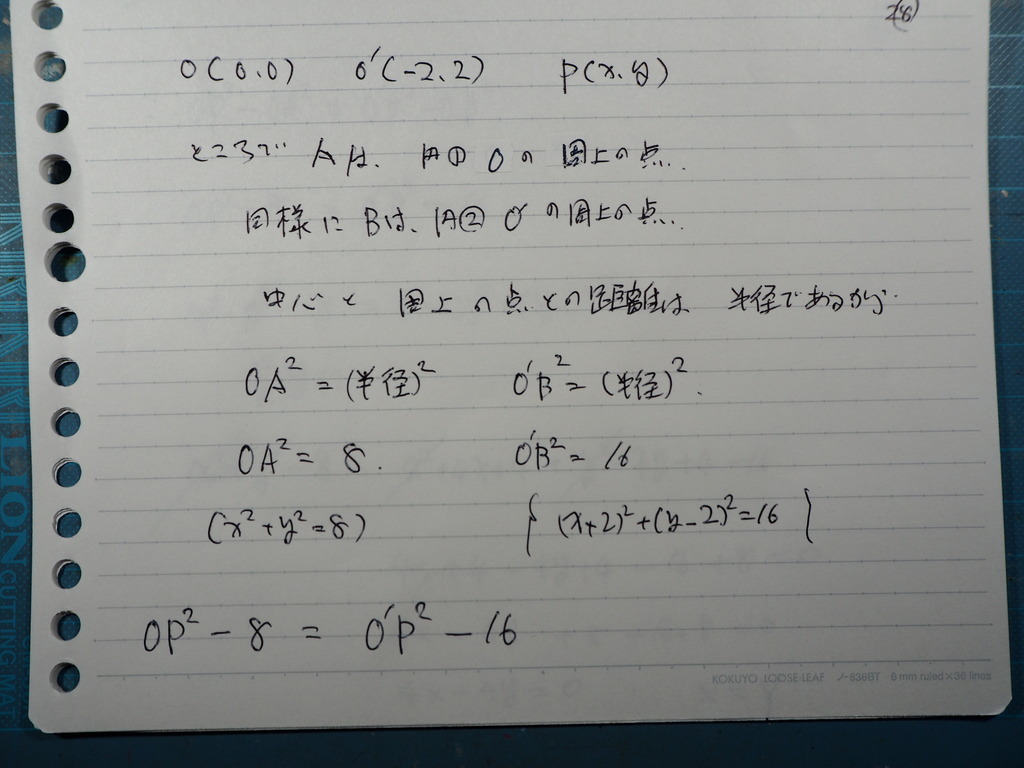 2(8)
O(0.0) O'(-2.2) P(x.y)
ところで Aは、円① Oの 周上の点.
同様に Bは、円② O'の周上の点.
中心と 周上の点との距離は 半径であるから.
OA²=(半径)² O'B²=(半径)².
OA²= 8. O'B²= 16
(x²+y²=8) { (x+2)²+(y-2)²=16 )
OP²-8 = O'P²-16
KOKUYO LOOSE-LEAF ノ-836BT 6 mm ruled×36 lines
LION
CUTTING MAT